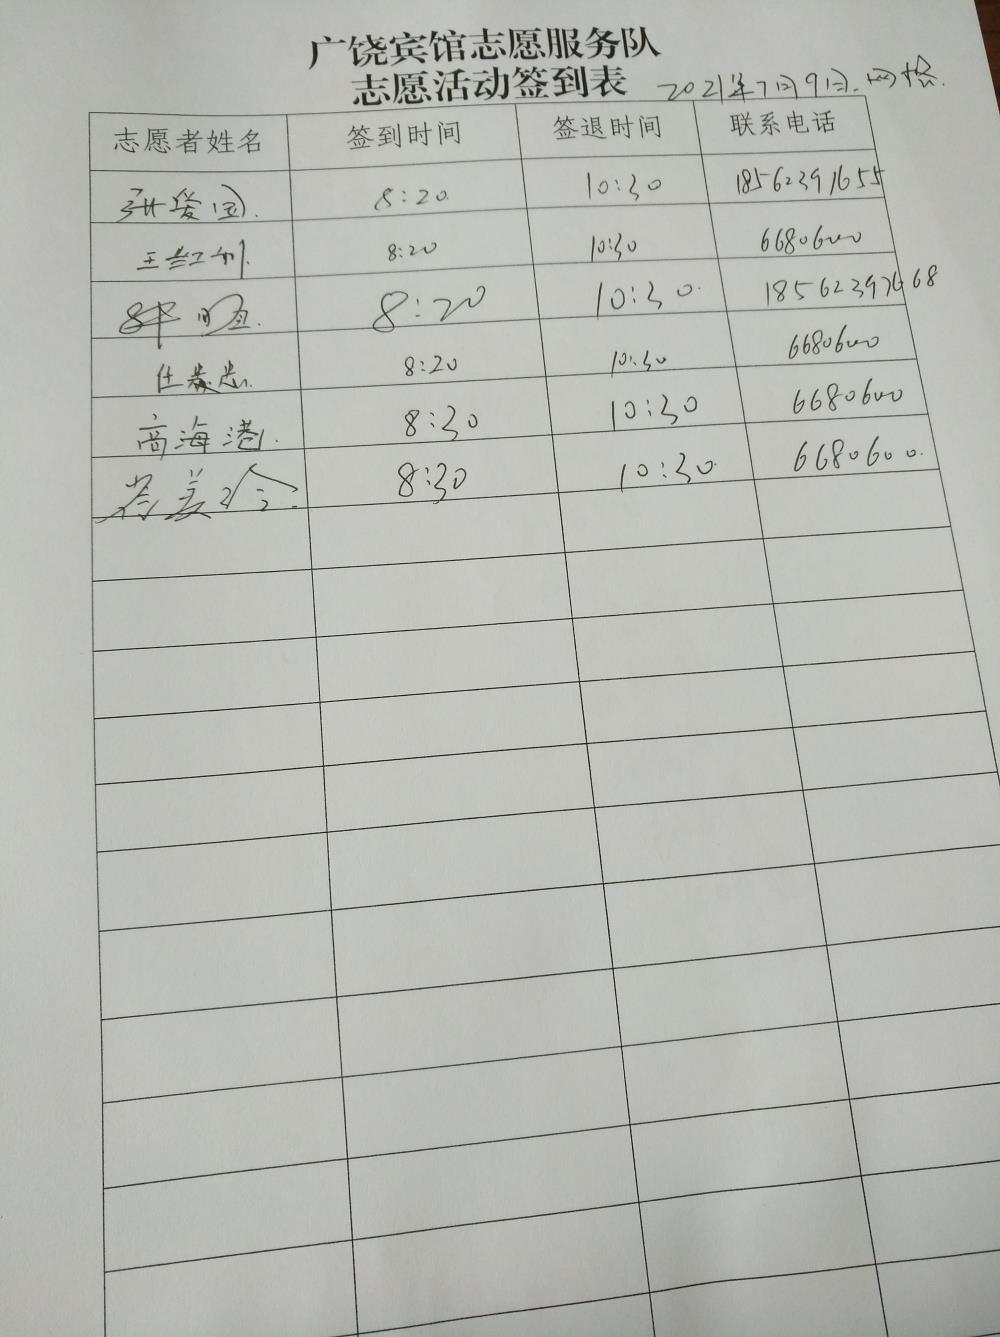 广饶宾馆志愿服务队
志愿活动签到表 2021年7月9日.网格.
志愿者姓名 签到时间 签退时间 联系电话
张爱国. 8:20 10:30 18562391655
王红利. 8:20 10:30 6680600
8:20 10:30 18562397668
任 8:20 10:30 6680600
高海港. 8:30 10:30 6680600
美玲 8:30 10:30 6680600